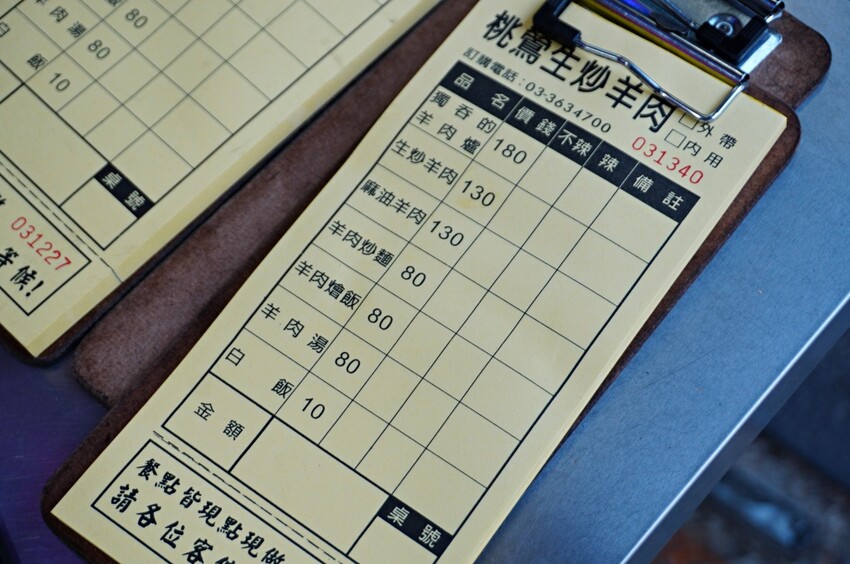 羊肉湯 80
80
白飯 10
桌號
031227
等候!
桃鶯生炒羊肉
訂購電話:03-3634700
□外帶
□內用
031340
品名 價錢 不辣 辣 備註
獨吞的羊肉爐 180
生炒羊肉 130
麻油羊肉 130
羊肉炒麵 80
羊肉燴飯 80
羊肉湯 80
白飯 10
金額
桌號
餐點皆現點現做
請各位客